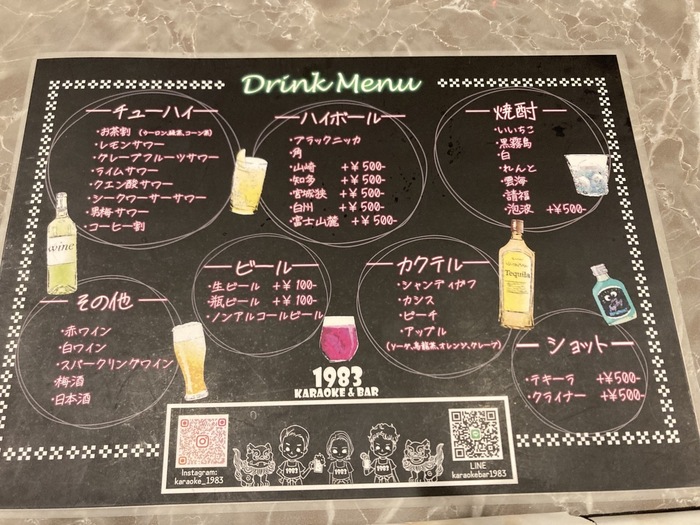 Drink Menu
チューハイ
・お茶割 (ウーロン,緑茶,コーン茶)
・レモンサワー
・グレープフルーツサワー
・ライムサワー
・クエン酸サワー
・シークワーサーサワー
・男梅サワー
・コーヒー割
ハイボール
・ブラックニッカ
・角
・山崎 +¥500-
・知多 +¥500-
・宮城狭 +¥500-
・白州 +¥500-
・富士山麓 +¥500-
焼酎
・いいちこ
・黒霧島
・白
・れんと
・雲海
・請福
・泡波 +¥500-
wine
ビール
・生ビール +¥100-
・瓶ビール +¥100-
・ノンアルコールビール
カクテル
・シャンディガフ
・カシス
・ピーチ
・アップル
(ソーダ、烏龍茶、オレンジ、グレープ)
Tequila
その他
・赤ワイン
・白ワイン
・スパークリングワイン
・梅酒
・日本酒
ショット
・テキーラ +¥500-
・クライナー +¥500-
1983
KARAOKE & BAR
Instagram:
karaoke_1983
1983
1983
1983
LINE
karaokebar1983